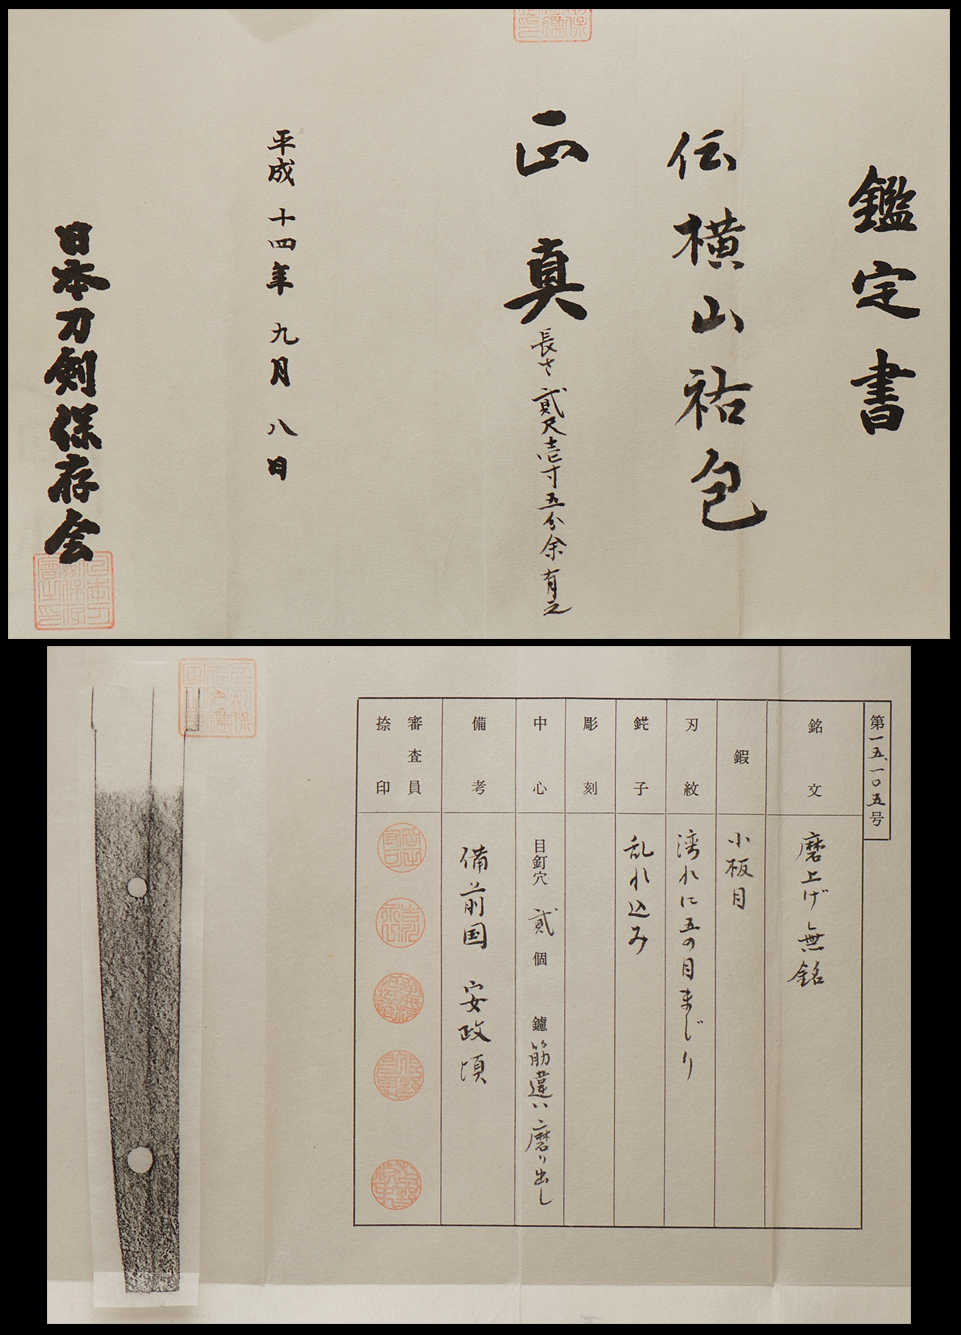 鑑定書
伝横山祐包
正真
長さ貳尺壱寸五分余有之
平成十四年九月八日
日本刀剣保存会
第一五、一〇五号
銘文
磨上げ無銘
鍜
小板目
刃紋
湾れに五の目まじり
鋩子
乱れ込み
彫刻
中心
目釘穴 貳個 鑢 筋違い磨り出し
備考
備前国 安政頃
審査員
捺印